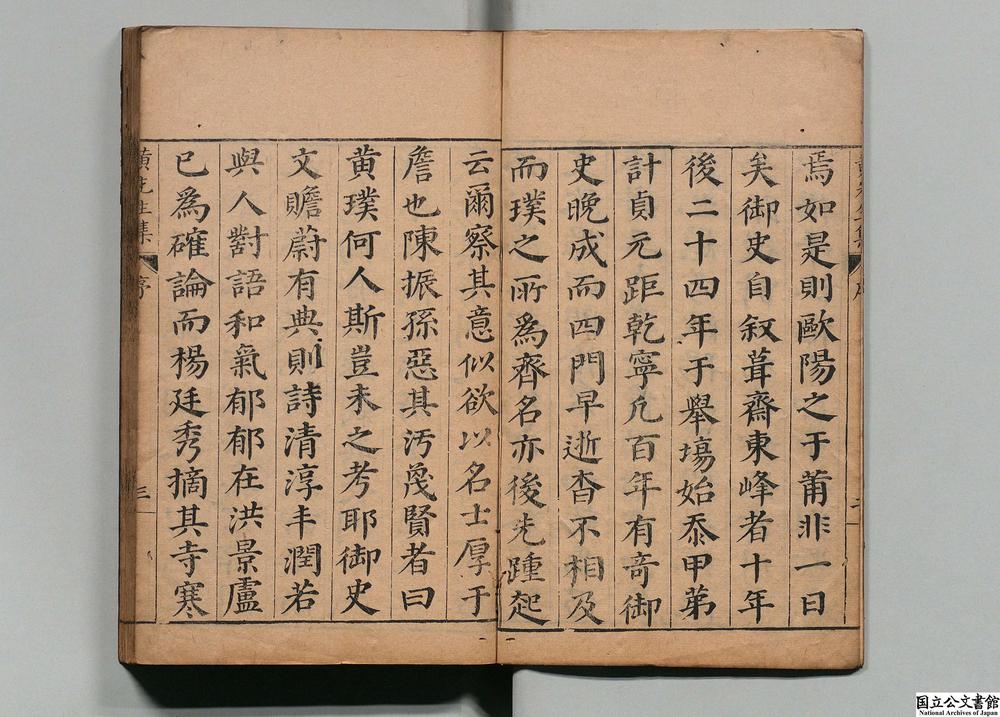 焉如是則歐陽之于莆非一日
矣御史自叙葺齋東峰者十年
後二十四年于舉塲始忝甲第
計貞元距乾寧凡百年有奇御
史晚成而四門早逝杳不相及
而璞之所為齊名亦後先踵起
云爾察其意似欲以名士厚于
詹也陳振孫惡其汚衊賢者曰
黄璞何人斯豈未之考耶御史
文贍蔚有典則詩清淳丰潤若
與人對語和氣郁郁在洪景盧
已為確論而楊廷秀摘其寺寒
黄先生集
序
三
国立公文書館
National Archives of Japan